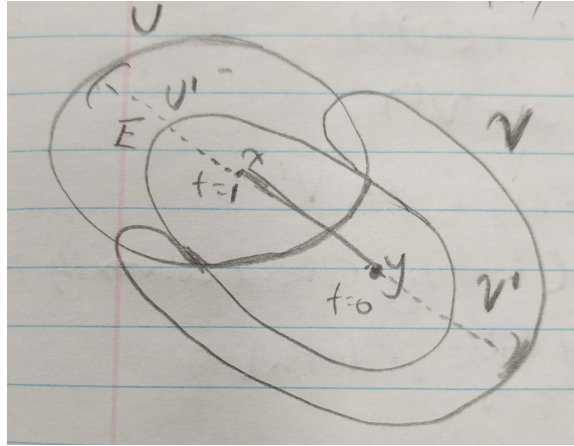 U
U'
E
x
t=1
V
y
t=0
V'